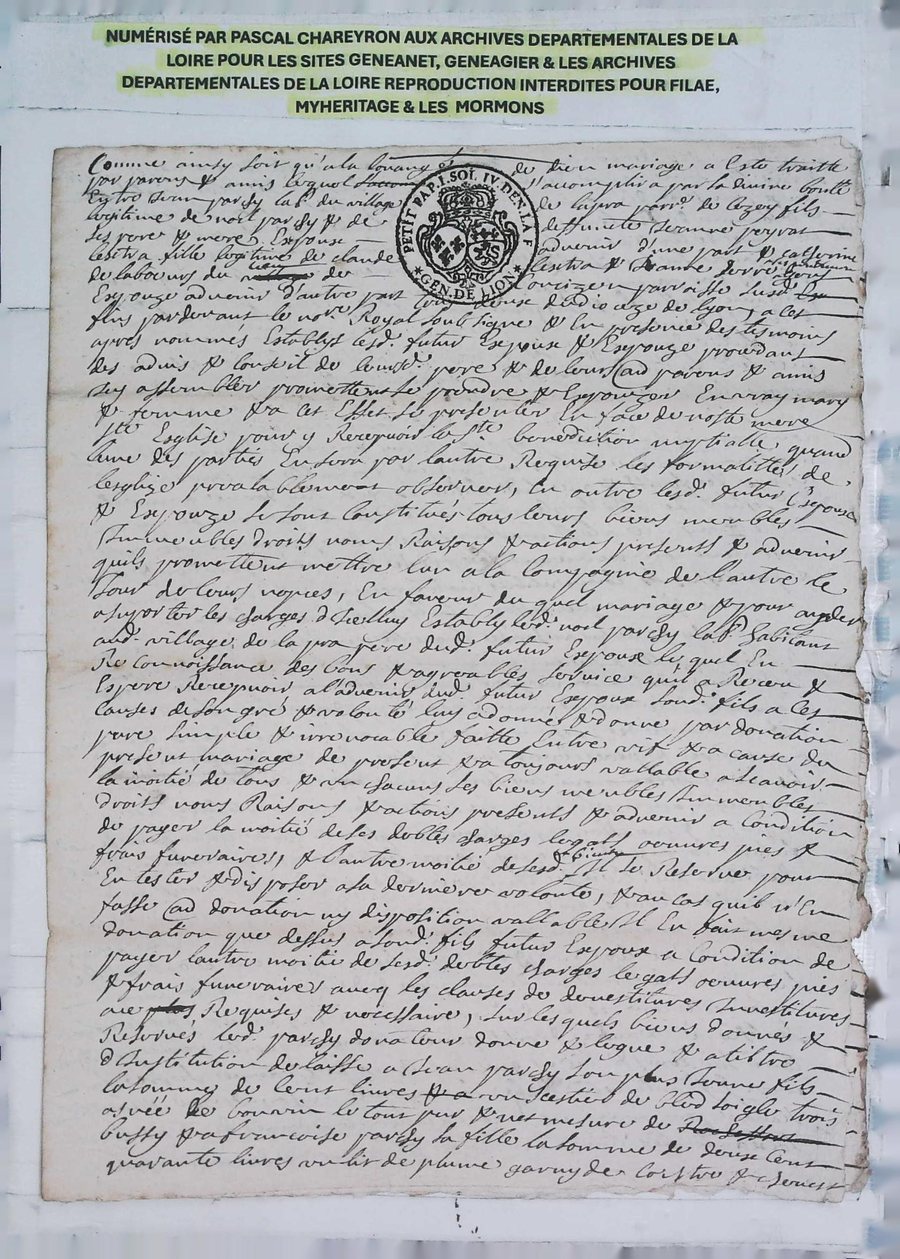 NUMÉRISÉ PAR PASCAL CHAREYRON AUX ARCHIVES DEPARTEMENTALES DE LA
LOIRE POUR LES SITES GENEANET, GENEAGIER & LES ARCHIVES
DEPARTEMENTALES DE LA LOIRE REPRODUCTION INTERDITES POUR FILAE,
MYHERITAGE & LES MORMONS
PETIT PAP. 1. SOL. IV. DEN. LA F.
GEN. DE LION
Comme ainsy soit qu'a la louange de dieu mariage a Esté traitté
par parens & amis lequel s'acomplira par sa divine bonté
Entre Jean parsy lab.r du village de parr.e de fils
legitime de noel parsy & de deffunte Jeanne peyrat
ses pere & mere Expoux advenir d'une part &
fille legitime de claude &
de laboeurs du de parroisse susd.
Expouze advenir d'autre part dudiocaze de lyon, a cet
fins pardevant le no.re Royal soubsigné & En presence des tesmoins
apres nommés Establys lesd. futur Expoux & Expouze procedant
des advis & conseil de leursd. pere & de leurs ad parens & amis
icy assembler promettent se prendre & Expouzer En vray mary
& femme & a cet Effet se presenter En face de nostre mere
S.te Esglise pour y Recepvoir la S.te benediction nuptialle, quand
lune des parties En sera par lautre Requise les formalittés de
lesglize prealablement observer, En outre lesd. futur Expoux
& Expouze se sont Constitués tous leurs biens meubles
Immeubles droits noms Raisons & actions presents & advenir
quils promettent mettre lun a la Compagnie de l'autre le
Jour de leurs nopces, En faveur du quel mariage & pour ayder
a suporter les charges d'Iceluy Estably led. noel parsy lab.r habitant
aud. village de la pra pere dud. futur Expoux lequel En
Reconnoissance des bons & agreables service quil a Receu &
Espere Recepvoir a l'advenir dud. futur Expoux sond. fils a ces
Causes de son gré & volonté luy a donné & donne par donation
pure simple & irrevocable faitte Entre vif & a cause du
present mariage de present & a toujours vallable a scavoir
la moitié de tous & un chacuns ses biens meubles Immeubles
droits noms Raisons & actions presents & advenir a Condition
de payer la moitié de ses debtes charges legats oeuvres pies &
frais funeraires, & l'autre moitié de sesd. biens Il se Reserve pour
En tester & disposer a sa derniere volonté, & au cas quil n'En
fasse ad donation ny disposition vallables Il En fait mesme
donation que dessus a sond. fils futur Expoux a Condition de
payer lautre moitié de sesd. debtes charges legats oeuvres pies
& frais funeraires avecq les clauses de devestitures Investitures
Requises & necessaire, sur lesquels biens donnés &
Reservés led. parsy donateur donne & legue & a tiltre
d'Institution delaisse a Jean parsy son plus Jeune fils
la somme de Cent livres un de bled soigle trois
de le tout pur & net mesure de
bussy & a francoise parsy sa fille la somme de deux Cent
quarante livres un lit de plume garny de &